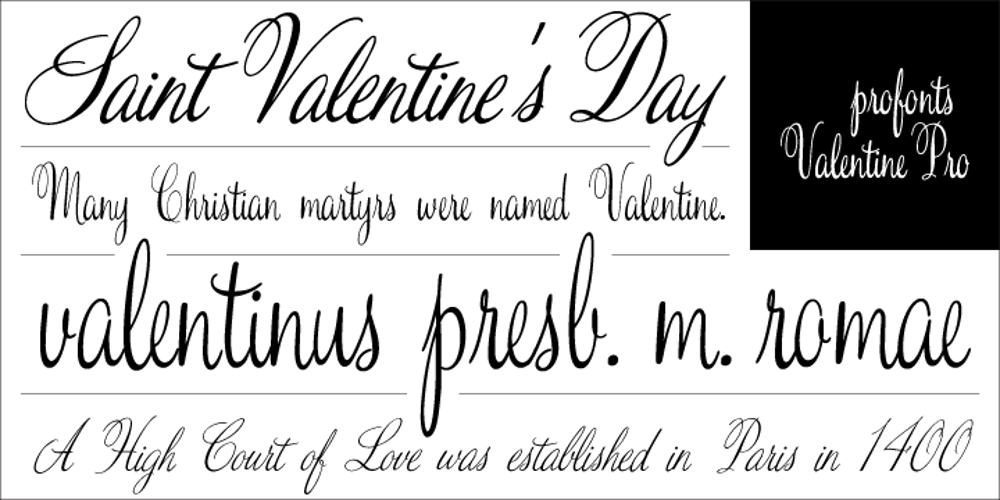 Saint Valentine's Day
profonts
Valentine Pro
Many Christian martyrs were named Valentine.
valentinus presb. m. romae
A High Court of Love was established in Paris in 1400